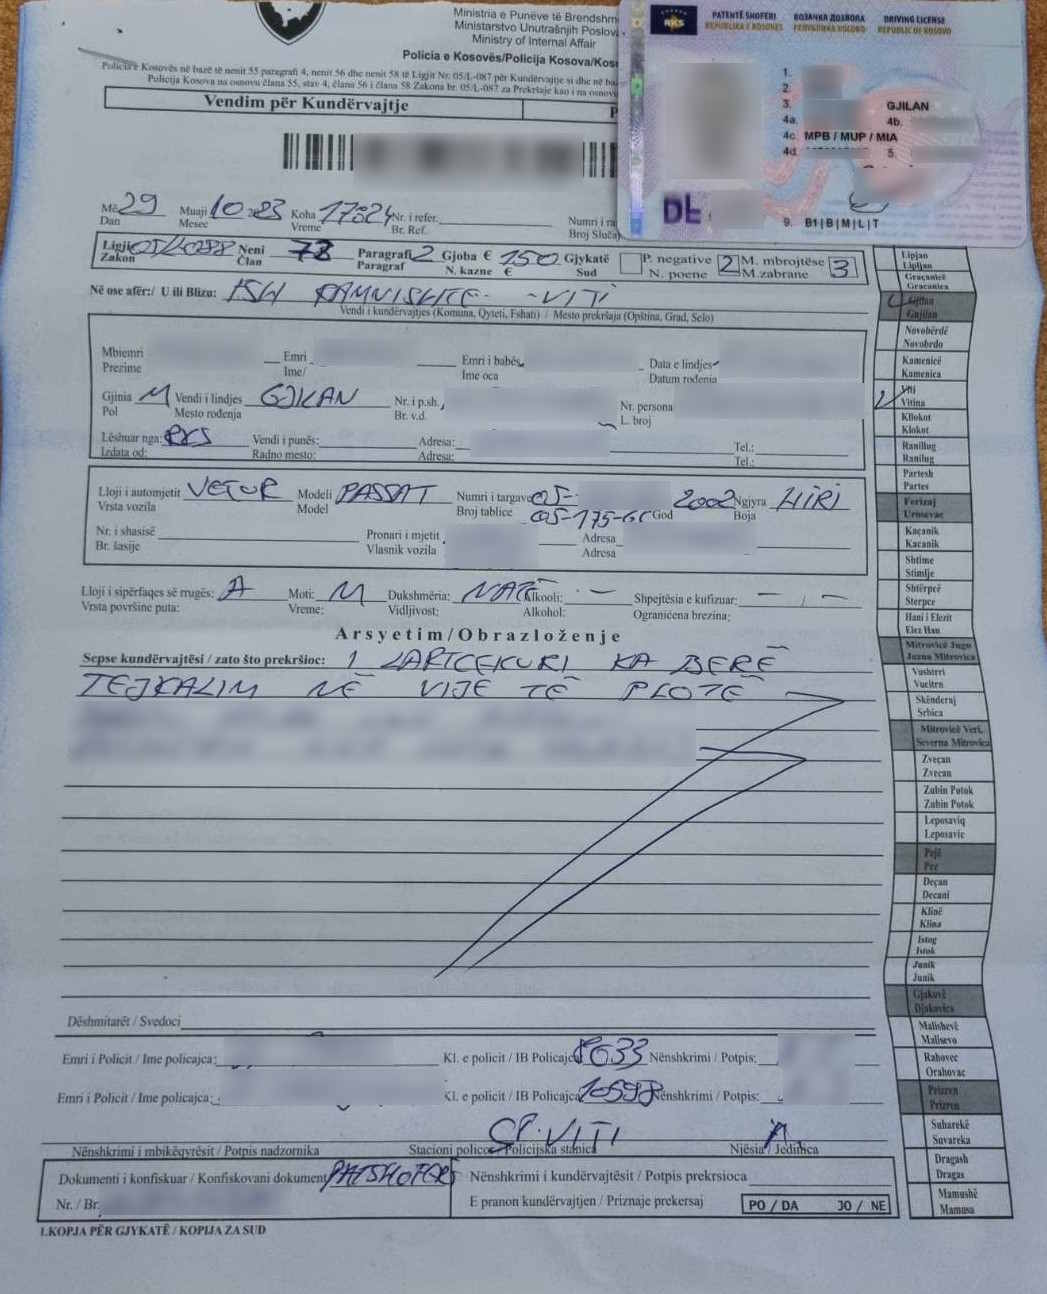 Ministria e Punëve të Brendshm
Ministarstvo Unutrašnjih Poslov
Ministry of Internal Affair
Policia e Kosovës/Policija Kosova/Kos
Policia e Kosovës në bazë të nenit 55 paragrafi 4, nenit 56 dhe nenit 58 të Ligjit Nr. 05/L-087 për Kundërvajtje si dhe në ba
Policija Kosova na osnovu člana 55, stav 4, člana 56 i člana 58 Zakona br. 05/L-087 za Prekršaje kao i na osnov
Vendim për Kundërvajtje P
RKS PATENTË SHOFERI ВОЗАЧКА ДОЗВОЛА DRIVING LICENSE
REPUBLIKA E KOSOVËS РЕПУБЛИКА КОСОВО REPUBLIC OF KOSOVO
1.
2.
3. GJILAN
4a. 4b.
4c. MPB / MUP / MIA
4d. 5.
DL
9. B1|B|M|L|T
Më 29 Muaji 10 2023 Koha 17:24 Nr. i refer. Numri i ra
Dan Mesec Vreme Br. Ref. Broj Sluča
Ligji 05/L-088 Neni 78 Paragrafi 2 Gjoba € 150 Gjykatë P. negative 2 M. mbrojtëse 3
Zakon Član Paragraf N. kazne € Sud N. poene M.zabrane
Në ose afër:/ U ili Blizu: - VITI
Vendi i kundërvajtjes (Komuna, Qyteti, Fshati) / Mesto prekršaja (Opština, Grad, Selo)
Mbiemri Emri Emri i babës Data e lindjes
Prezime Ime/ Ime oca Datum rođenja
Gjinia M Vendi i lindjes GJILAN Nr. i p.sh. Nr. persona
Pol Mesto rođenja Br. v.d. L. broj
Lëshuar nga: RKS Vendi i punës: Adresa: Tel.:
Izdata od: Radno mesto: Adresa: Tel.:
Lloji i automjetit VETUR Modeli PASSAT Numri i targave 05- 2002 Ngjyra HIRI
Vrsta vozila Model Broj tablice 05-175-GC God Boja
Nr. i shasisë Pronari i mjetit Adresa
Br. šasije Vlasnik vozila Adresa
Lloji i sipërfaqes së rrugës: A Moti: M Dukshmëria: NATË Alkooli: - Shpejtësia e kufizuar: - , -
Vrsta površine puta: Vreme: Vidljivost: Alkohol: Ogranićena brezina:
Arsyetim/Obrazloženje
Sepse kundërvajtësi / zato što prekršioc: I LARTCEKURI KA BËRË
TEJKALIM NË VIJË TË PLOTË
Dëshmitarët / Svedoci
Emri i Policit / Ime policajca: Kl. e policit / IB Policajca 8633 Nënshkrimi / Potpis:
Emri i Policit / Ime policajca: Kl. e policit / IB Policajca 10598 Nënshkrimi / Potpis:
SP. VITI A
Nënshkrimi i mbikëqyrësit / Potpis nadzornika Stacioni policor / Policijska stanica Njësia / Jedinica
Dokumenti i konfiskuar / Konfiskovani dokument PATSHOFERI
Nr. / Br.
Nënshkrimi i kundërvajtësit / Potpis prekrsioca
E pranon kundërvajtjen / Priznaje prekersaj PO / DA JO / NE
I.KOPJA PËR GJYKATË / KOPIJA ZA SUD
Lipjan
Lipljan
Graçanicë
Gracanica
Gjilan
Gnjilan
Novobërdë
Novobrdo
Kamenicë
Kamenica
Viti
Vitina
Kllokot
Klokot
Ranillug
Ranilug
Partesh
Partes
Ferizaj
Urosevac
Kaçanik
Kacanik
Shtime
Stimlje
Shtërpcë
Sterpce
Hani i Elezit
Elez Han
Mitrovicë Jugo
Juzna Mitrovica
Vushtrri
Vucitrn
Skënderaj
Srbica
Mitrovicë Veri.
Severna Mitrovica
Zveçan
Zvecan
Zubin Potok
Zubin Potok
Leposaviq
Leposavic
Pejë
Pec
Deçan
Decani
Klinë
Klina
Istog
Istok
Junik
Junik
Gjakovë
Djakovica
Malishevë
Malisevo
Rahovec
Orahovac
Prizren
Prizren
Suharekë
Suvareka
Dragash
Dragas
Mamushë
Mamusa